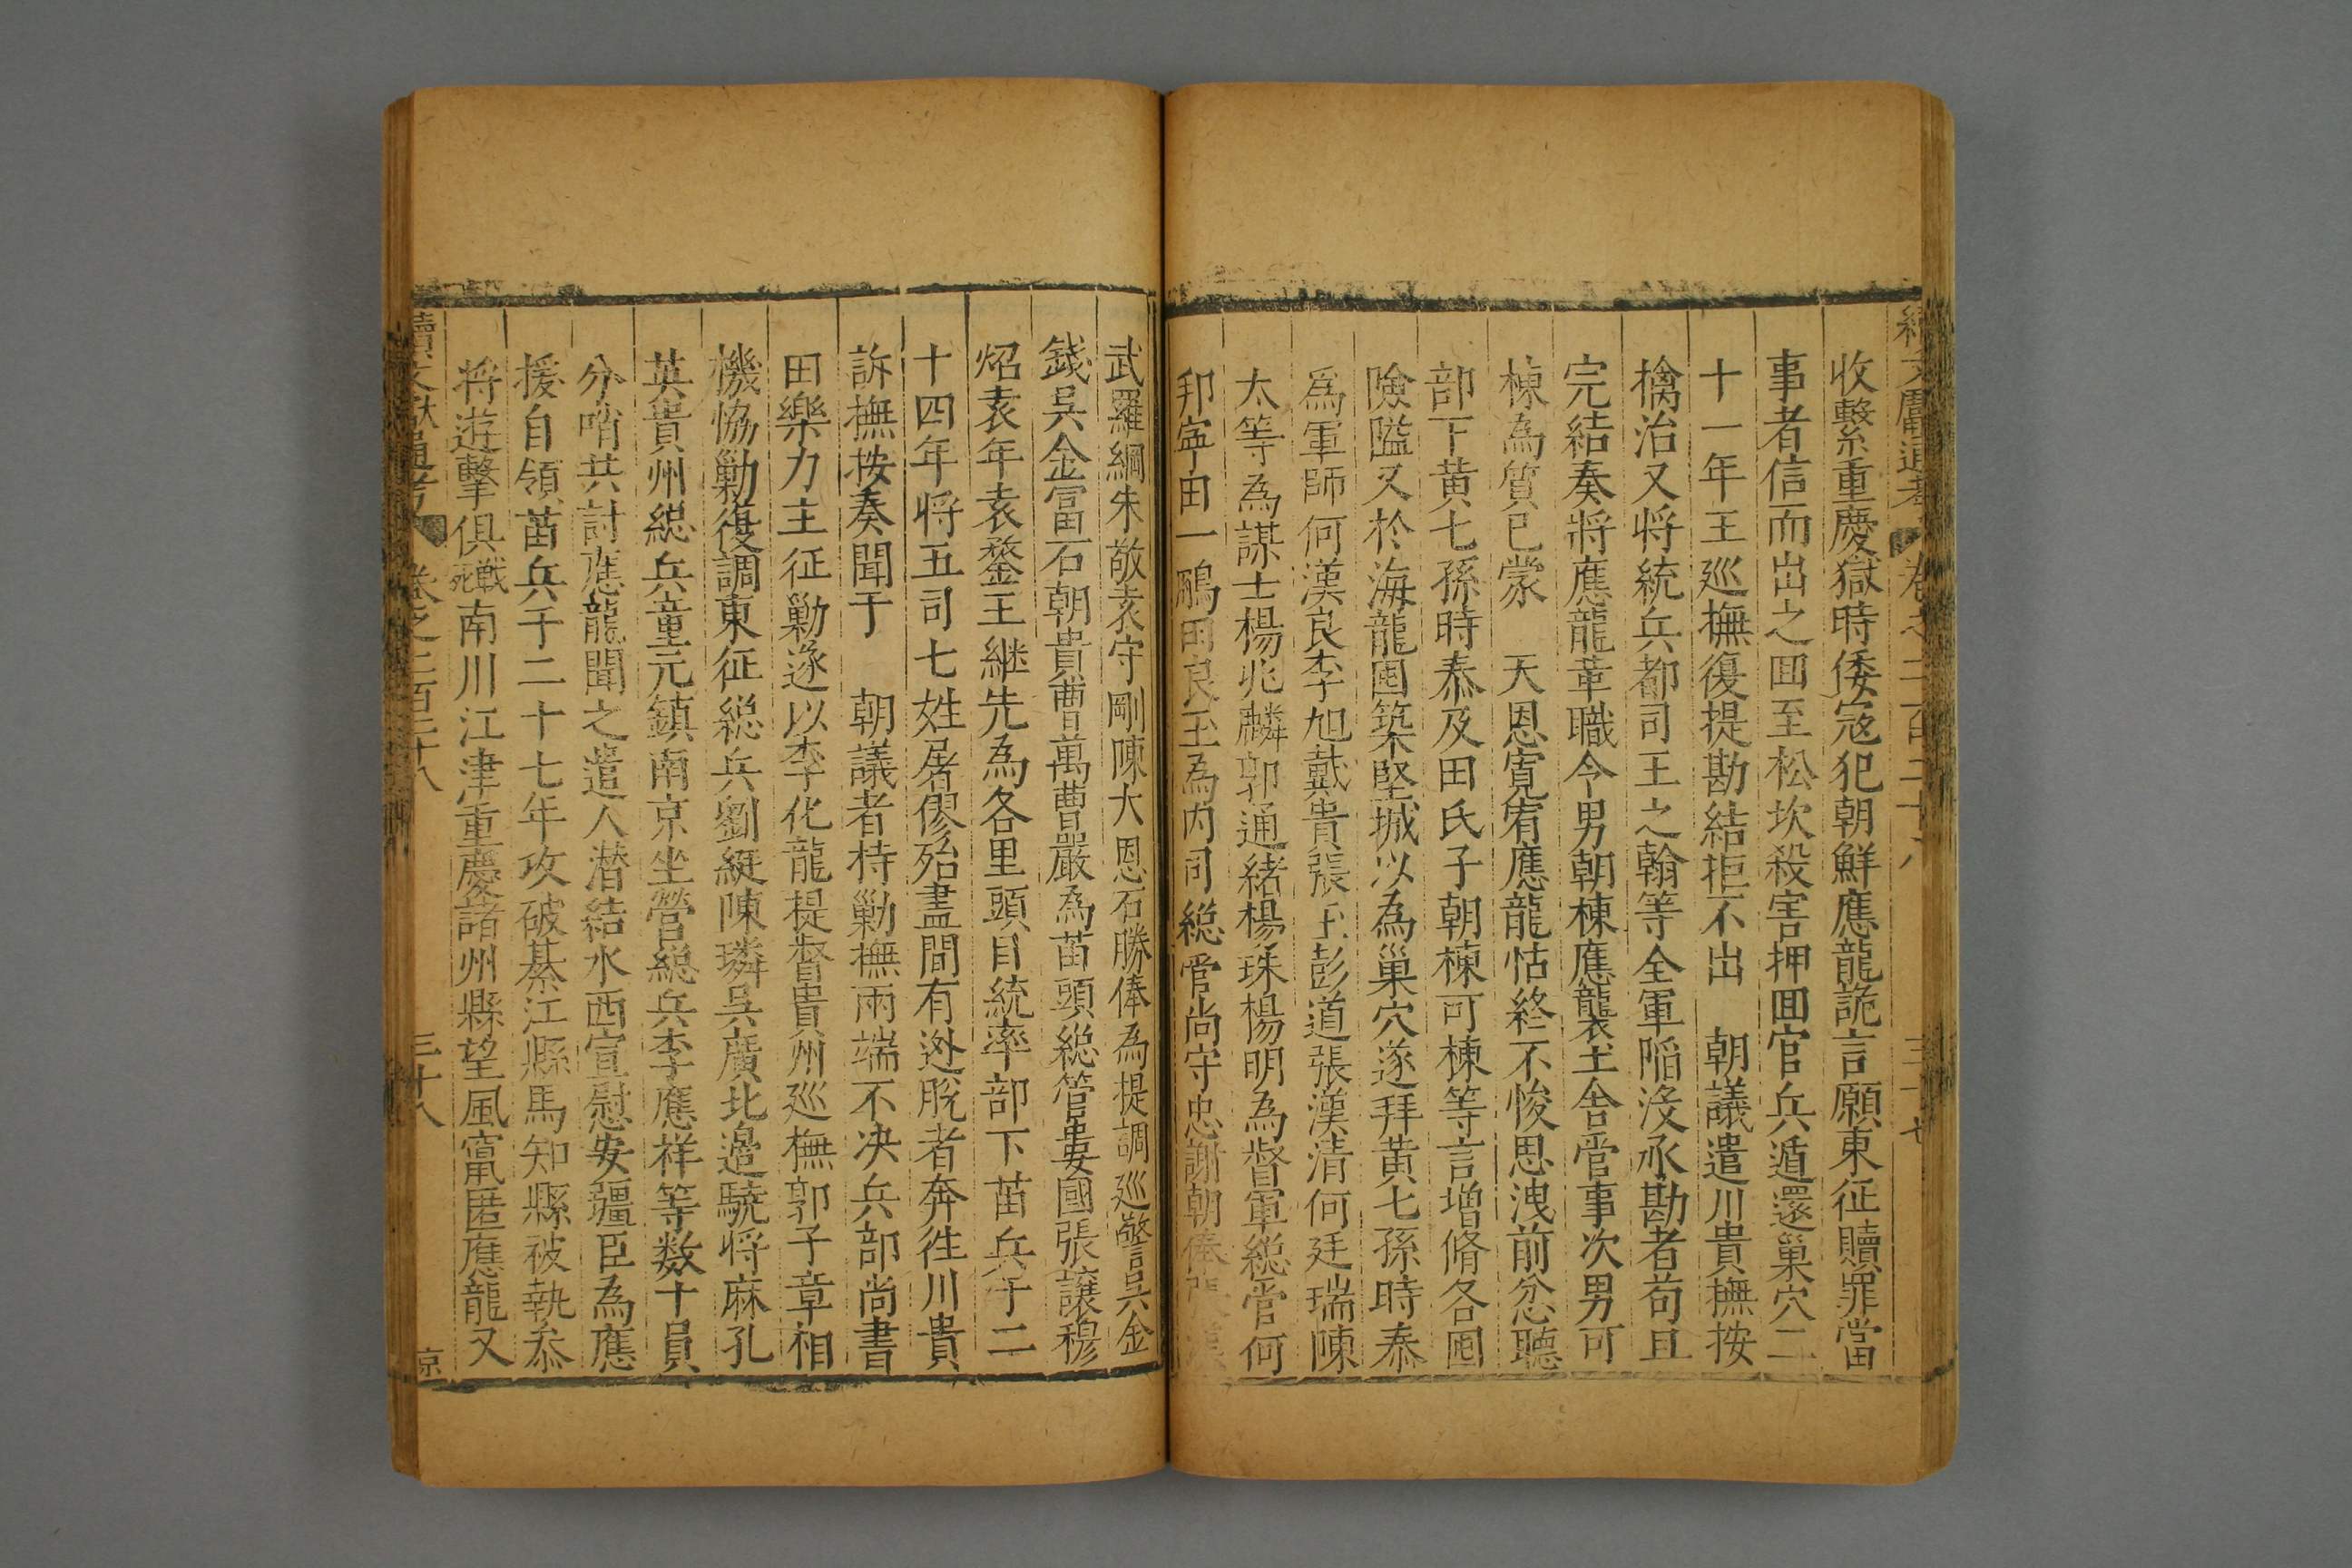 續文獻通考 卷之二百三十八 三十七
收繫重慶獄時倭寇犯朝鮮應龍詭言願東征贖罪當
事者信而出之囬至松坎殺害押囬官兵遁還巢穴二
十一年王巡撫復提勘結拒不出　朝議遣川貴撫按
擒治又将統兵都司王之翰等全軍陷没承勘者苟且
完結奏將應龍革職令男朝棟應襲土舍管事次男可
棟為質已蒙　天恩寬宥應龍怙終不悛思洩前忿聽
部下黄七孫時泰及田氏子朝棟可棟等言增脩各囤
險隘又於海龍囤築堅城以為巢穴遂拜黄七孫時泰
為軍師何漢良李旭戴貴張玉彭道張漢清何廷瑞陳
太等為謀士楊兆麟郭通緒楊珠楊明為督軍総管何
邦寧田一鵰田良玉為内司総管尚守忠謝朝俸
武羅綱朱敬袁守剛陳大恩石勝俸為提調巡警吳金
錢吳金富石朝貴曹萬曹嚴為苗頭総管婁國張讓穆
炤袁年袁鏊王継先為各里頭目統率部下苗兵于二
十四年将五司七姓屠僇殆盡間有逃脫者奔徃川貴
訴撫按奏聞于　朝議者持勦撫兩端不决兵部尚書
田樂力主征勦遂以李化龍提督貴州巡撫郭子章相
機恊勦復調東征総兵劉綎陳璘吳廣北邉驍将麻孔
英貴州総兵童元鎮南京坐營総兵李應祥等数十員
分哨共討應龍聞之遣人潜結水西宣慰安疆臣為應
援自領苗兵于二十七年攻破綦江縣馬知縣被執叅
将遊擊俱戰死南川江津重慶諸州縣望風竄匿應龍又
續文獻通考 卷之二百三十八 三十八 京